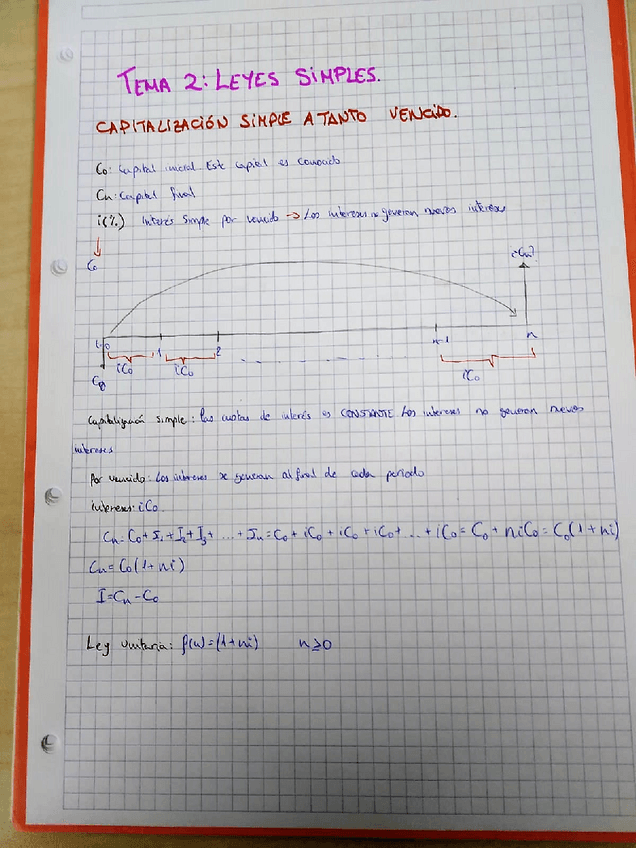 TEMA 2: LEYES SIMPLES.
CAPITALIZACIÓN SIMPLE A TANTO VENCIDO.
C₀: Capital inicial. Este capital es conocido
Cn: Capital final
i(%) Interés simple por vencido → Los intereses no generan nuevos intereses
C₀ ¿Cn?
t=0 1 2 n-1 n
iC₀ iC₀ iC₀
C₀
Capitalización simple: las cuotas de interés es CONSTANTE Los intereses no generan nuevos
intereses
Por vencido: Los intereses se generan al final de cada periodo
Intereses: iC₀
Cn = C₀ + I₁ + I₂ + I₃ + ... + In = C₀ + iC₀ + iC₀ + iC₀ + ... + iC₀ = C₀ + niC₀ = C₀(1 + ni)
Cn = C₀(1 + ni)
I = Cn - C₀
Ley unitaria: f(n) = (1 + ni) n ≥ 0